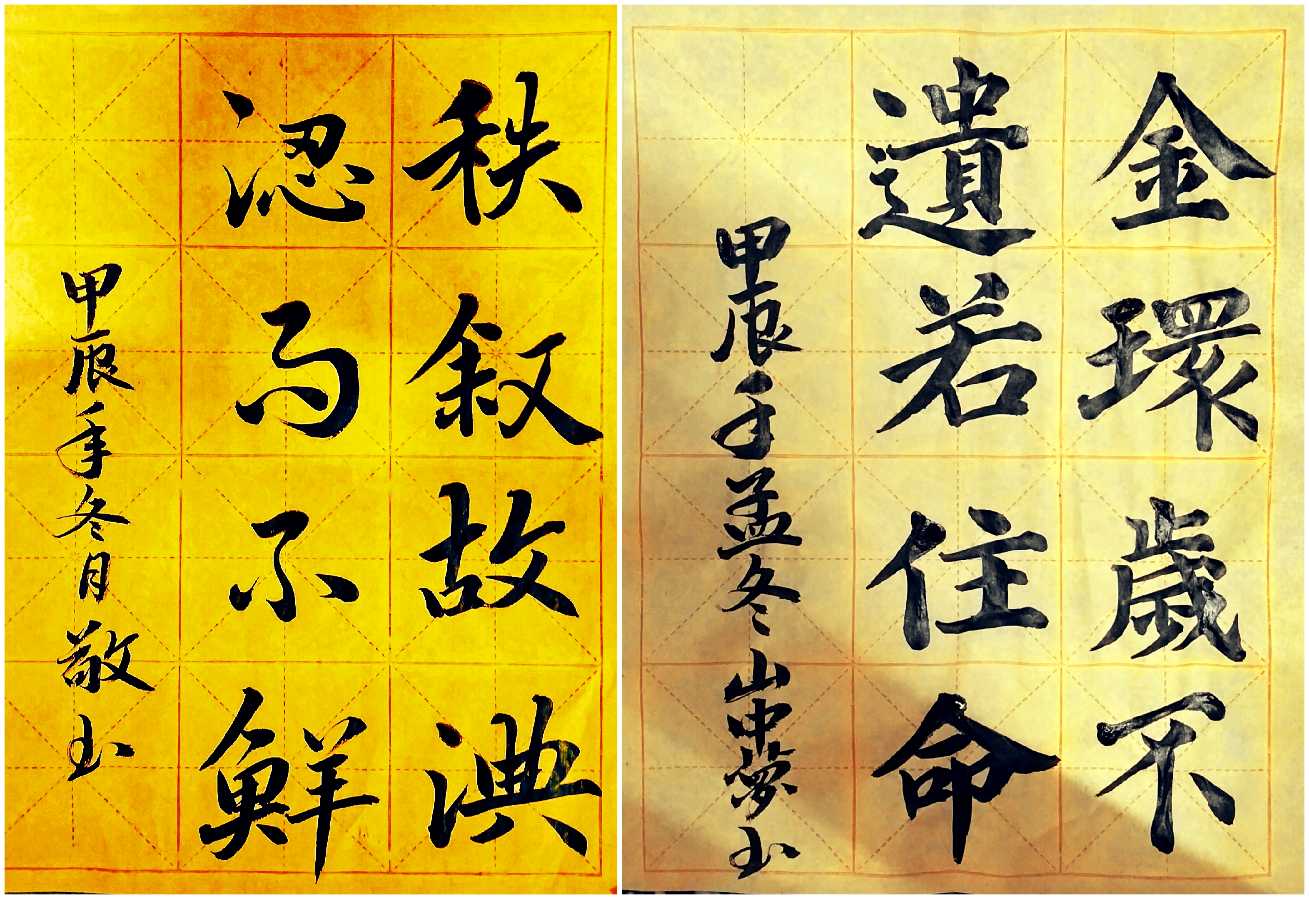 秩叙故淟
涊而不鮮
甲辰年冬月敬书
金環歲不
遺若住命
甲辰年孟冬山中夢书